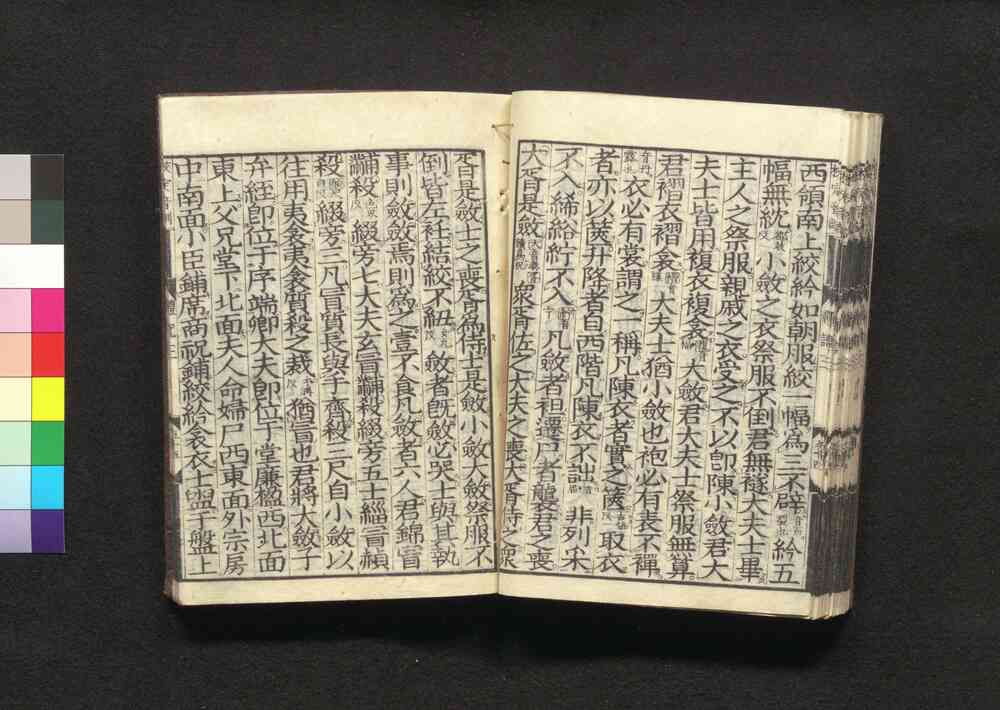 西領南上絞紟如朝服絞一幅爲三不辟紟五
幅無紞小斂之衣祭服不倒君無襚大夫士畢
主人之祭服親戚之衣受之不以卽陳小斂君大
夫士皆用複衣複衾大斂君大夫士祭服無筭
君褶衣褶衾大夫士猶小斂也袍必有表不襌
衣必有裳謂之一稱凡陳衣者實之篋取衣
者亦以篋升降者自西階凡陳衣不詘非列采
不入絺綌紵不入凡斂者袒遷尸者襲君之喪
大胥是斂衆胥佐之大夫之喪大胥侍之衆
胥是斂士之喪胥爲侍士是斂小斂大斂祭服不
倒皆左衽結絞不紐斂者旣斂必哭士與其執
事則斂斂焉則爲之壹不食凡斂者六人君錦冒
黼殺綴旁七大夫玄冒黼殺綴旁五士緇冒赬
殺綴旁三凡冒質長與手齊殺三尺自小斂以
往用夷衾夷衾質殺之裁猶冒也君將大斂子
弁絰卽位于序端卿大夫卽位于堂廉楹西北面
東上父兄堂下北面夫人命婦尸西東面外宗房
中南面小臣鋪席商祝鋪絞紟衾衣士盥于盤上